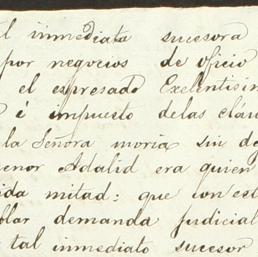 l inmediata sucesora
por negocios de oficio
el espresado Exelentisim
é impuesto delas cláu
la Señora moria sin de
enor Adalid era quien
ida mitad: que con est
blar demanda judicial
tal inmediato sucesor